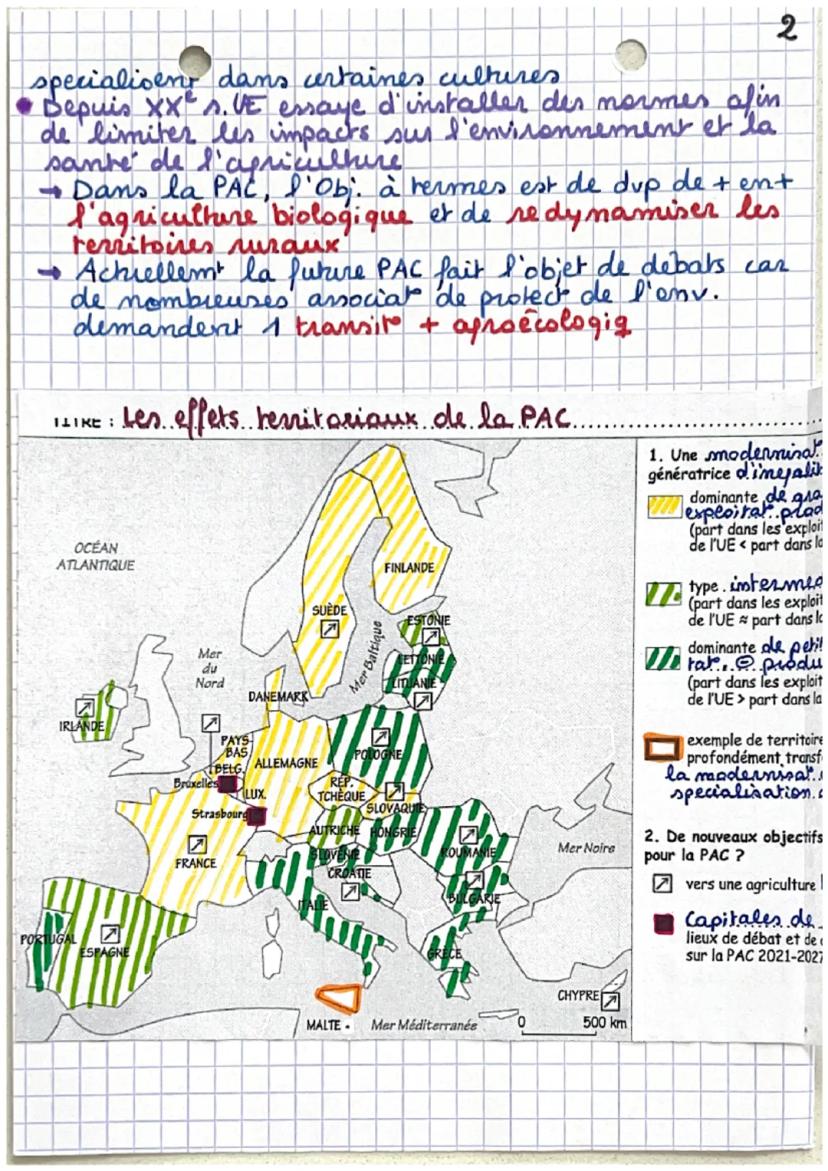 2
specialisent dans certaines cultures
• Depuis XXᵉ s. UE essaye d'installer des normes afin
de limiter les impacts sur l'environnement et la
santé de l'agriculture
→ Dans la PAC, l'Obj. à termes est de dvp de + en +
l'agriculture biologique et de redynamiser les
territoires ruraux
→ Actuellemt la future PAC fait l'objet de débats car
de nombreuses associat° de protect° de l'env.
demandent 1 transit° + agroécologiq
TITRE : Les effets territoriaux de la PAC
OCÉAN
ATLANTIQUE
FINLANDE
SUÈDE
ESTONIE
Mer Baltique
LETTONIE
LITUANIE
Mer
du
Nord
DANEMARK
IRLANDE
PAYS-
BAS
POLOGNE
BELG.
ALLEMAGNE
Bruxelles
LUX.
RÉP.
TCHÈQUE
SLOVAQUIE
Strasbourg
AUTRICHE
HONGRIE
SLOVÉNIE
ROUMANIE
Mer Noire
FRANCE
CROATIE
BULGARIE
ITALIE
PORTUGAL
ESPAGNE
GRÈCE
CHYPRE
MALTE
Mer Méditerranée
0 500 km
1. Une modernisat°
génératrice d'inégalit
dominante de gra
exploitat° prod
(part dans les exploit
de l'UE < part dans la
type intermé
(part dans les exploit
de l'UE ≈ part dans la
dominante de petit
tat° ⊖ produ
(part dans les exploit
de l'UE > part dans la
exemple de territoire
profondément transf
la modernisat°
spécialisation
2. De nouveaux objectifs
pour la PAC ?
vers une agriculture
Capitales de
lieux de débat et de
sur la PAC 2021-2027